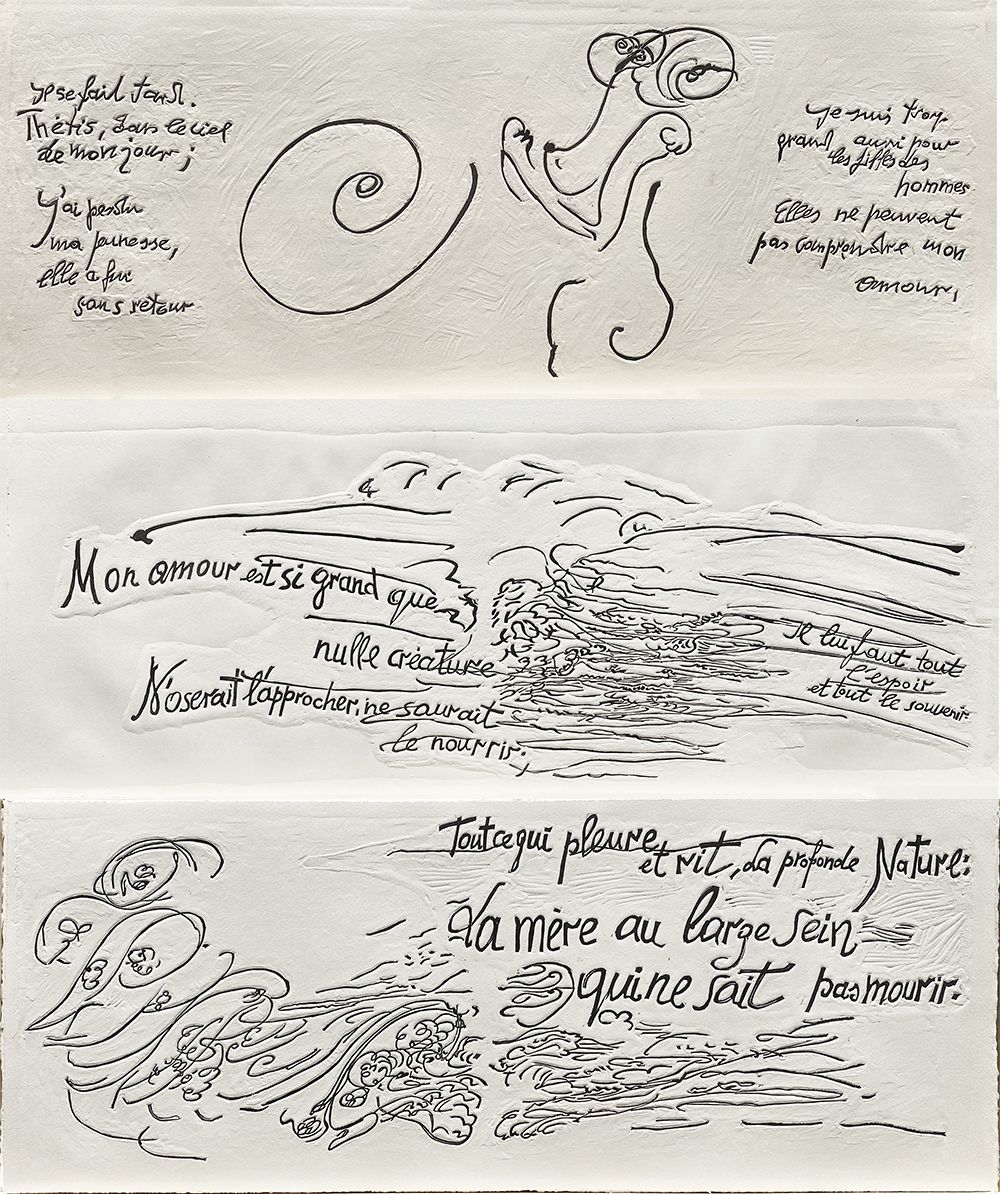 Il se fait tard.
Thétis, dans le ciel
de mon jour;
J'ai perdu
ma jeunesse,
elle a fui
sans retour
Je suis trop
grand aussi pour
les filles des
hommes
Elles ne peuvent
pas comprendre mon
amour,
Mon amour est si grand que
nulle créature
N'oserait l'approcher, ne saurait
le nourrir;
Il lui faut tout
l'espoir
et tout le souvenir
Tout ce qui pleure
et rit, La profonde Nature:
La mère au large sein
qui ne sait pas mourir.